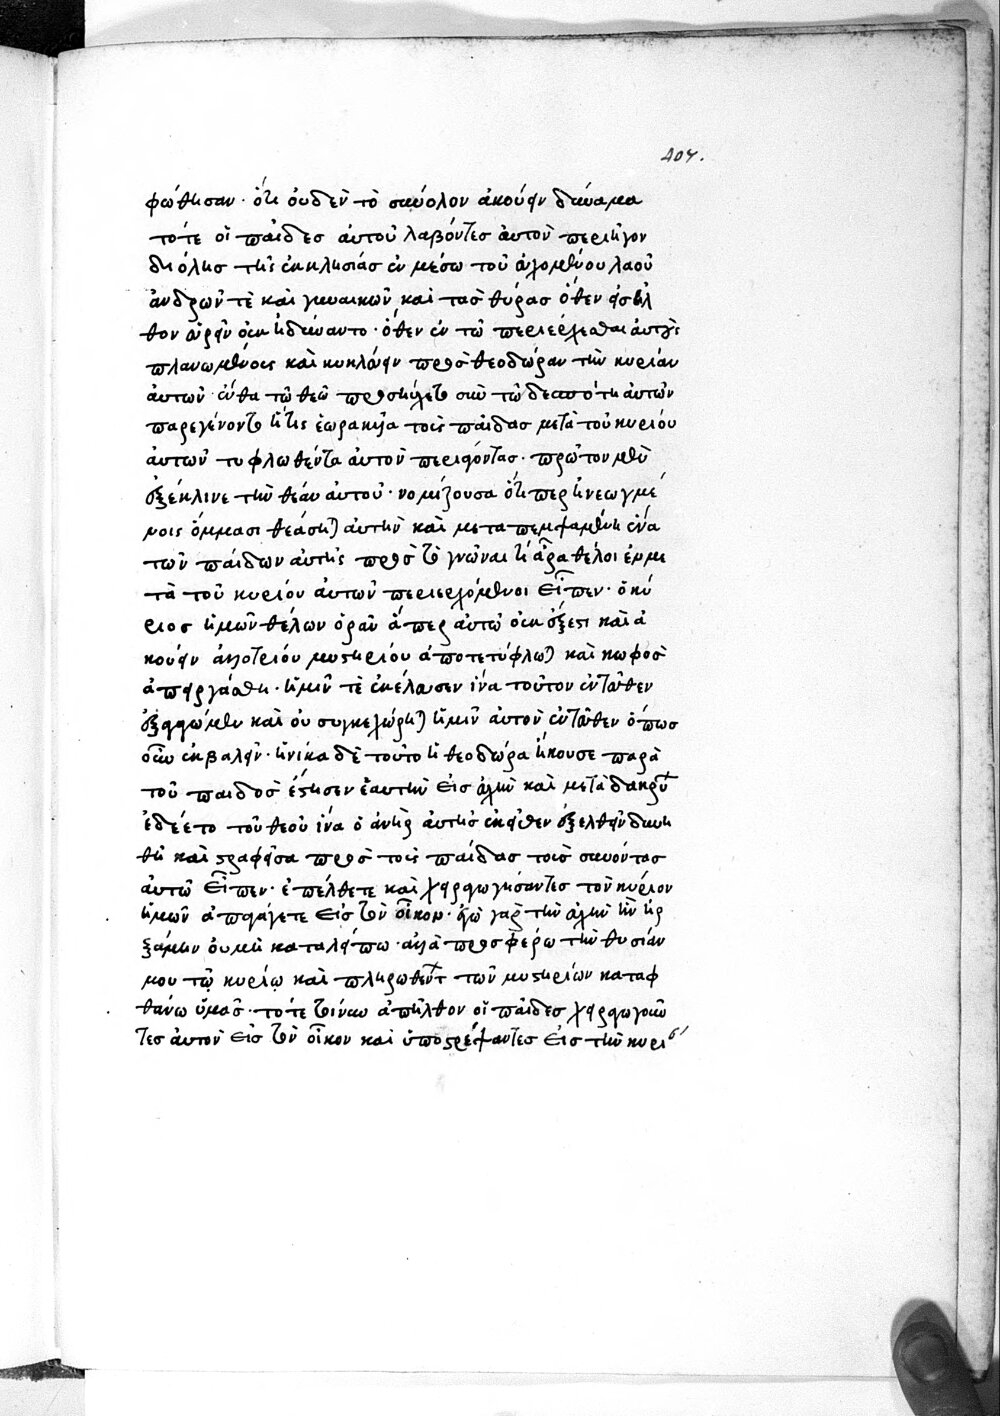 407.
φώθησαν · ὅτι οὐδὲν τὸ σύνολον ἀκούειν δυνάμε
τότε οἱ παῖδες αὐτοῦ λαβόντες αὐτὸν περιῆγον
δι όλης τῆς ἐκκλησίας ἐν μέσω τοῦ εὐχομένου λαοῦ
ἀνδρῶν τὲ καὶ γυναικῶν καὶ τὰς θύρας ὅθεν εἰσῆλ
θον εὑρεῖν οὐκ ἠδύναντο · ὅθεν ἐν τῶ περιέρχεσθαι αὐτοὺς
πλανωμένοις καὶ κυκλούειν πρὸς θεοδώραν τὴν κυρίαν
αὐτῶν · ἔνθα τῶ θεῶ προσηύχετο σὺν τῶ δεσπότη αὐτῶν
παρεγένοντο ἥτις ἑωρακυῖα τοὺς παῖδας μετὰ τοῦ κυρίου
αὐτῶν τυφλωθέντα αὐτὸν περιάγοντας · πρῶτον μὲν
ἐξέκλινε τὴν θέαν αὐτοῦ · νομίζουσα ὅτιπερ ἠνεωγμέ
νοις ὄμμασι θεάσηται αὐτὴν καὶ μεταπεμψαμένη ἕνα
τῶν παίδων αὐτῆς πρὸς τὸ γνῶναι τί ἄρα θέλοι ἐν με
τὰ τοῦ κυρίου αὐτῶν περιερχόμενοι εἶπεν · ὁ κύ
ριος ἡμῶν θέλων ὁρᾶν ἅπερ αὐτῶ οὐκ ἔξεστι καὶ ἀ
κούειν ἀλλοτρίου μυστηρίου ἀποτετύφλωται καὶ κωφὸς
ἀπειργάσθη · ἡμῖν τὲ ἐκέλευσεν ἵνα τοῦτον ἐντεῦθεν
ἐξάξωμεν καὶ οὐ συγκεχώρηται ἡμῖν αὐτὸν ἐντεῦθεν ὅπως
οὖν ἐκβαλεῖν · ἡνίκα δὲ τοῦτο ἡ θεοδώρα ἤκουσε παρὰ
τοῦ παιδὸς ἔστησεν ἑαυτὴν εἰς εὐχὴν καὶ μετὰ δακρύων
ἐδέετο τοῦ θεοῦ ἵνα ὁ ἀνὴρ αὐτῆς ἐκεῖθεν ἐξελθεῖν δυνη
θῆ καὶ στραφεῖσα πρὸς τοὺς παῖδας τοὺς συνόντας
αὐτῶ εἶπεν · ἐπέλθετε καὶ χειραγωγήσαντες τὸν κύριον
ἡμῶν ἀπαγάγετε εἰς τὸν οἶκον · ἐγὼ γὰρ τὴν εὐχὴν ἣν ἠρ
ξάμην οὐ μὴ καταλείπω · ἀλλὰ προσφέρω τὴν θυσίαν
μου τῷ κυρίῳ καὶ πληρωθέντων τῶν μυστηρίων καταφ
θάνω ὑμᾶς · τότε τοίνυν ἀπῆλθον οἱ παῖδες χειραγωγοῦν
τες αὐτὸν εἰς τὸν οἶκον καὶ ὑποστρέψαντες εἰς τὴν κυρια